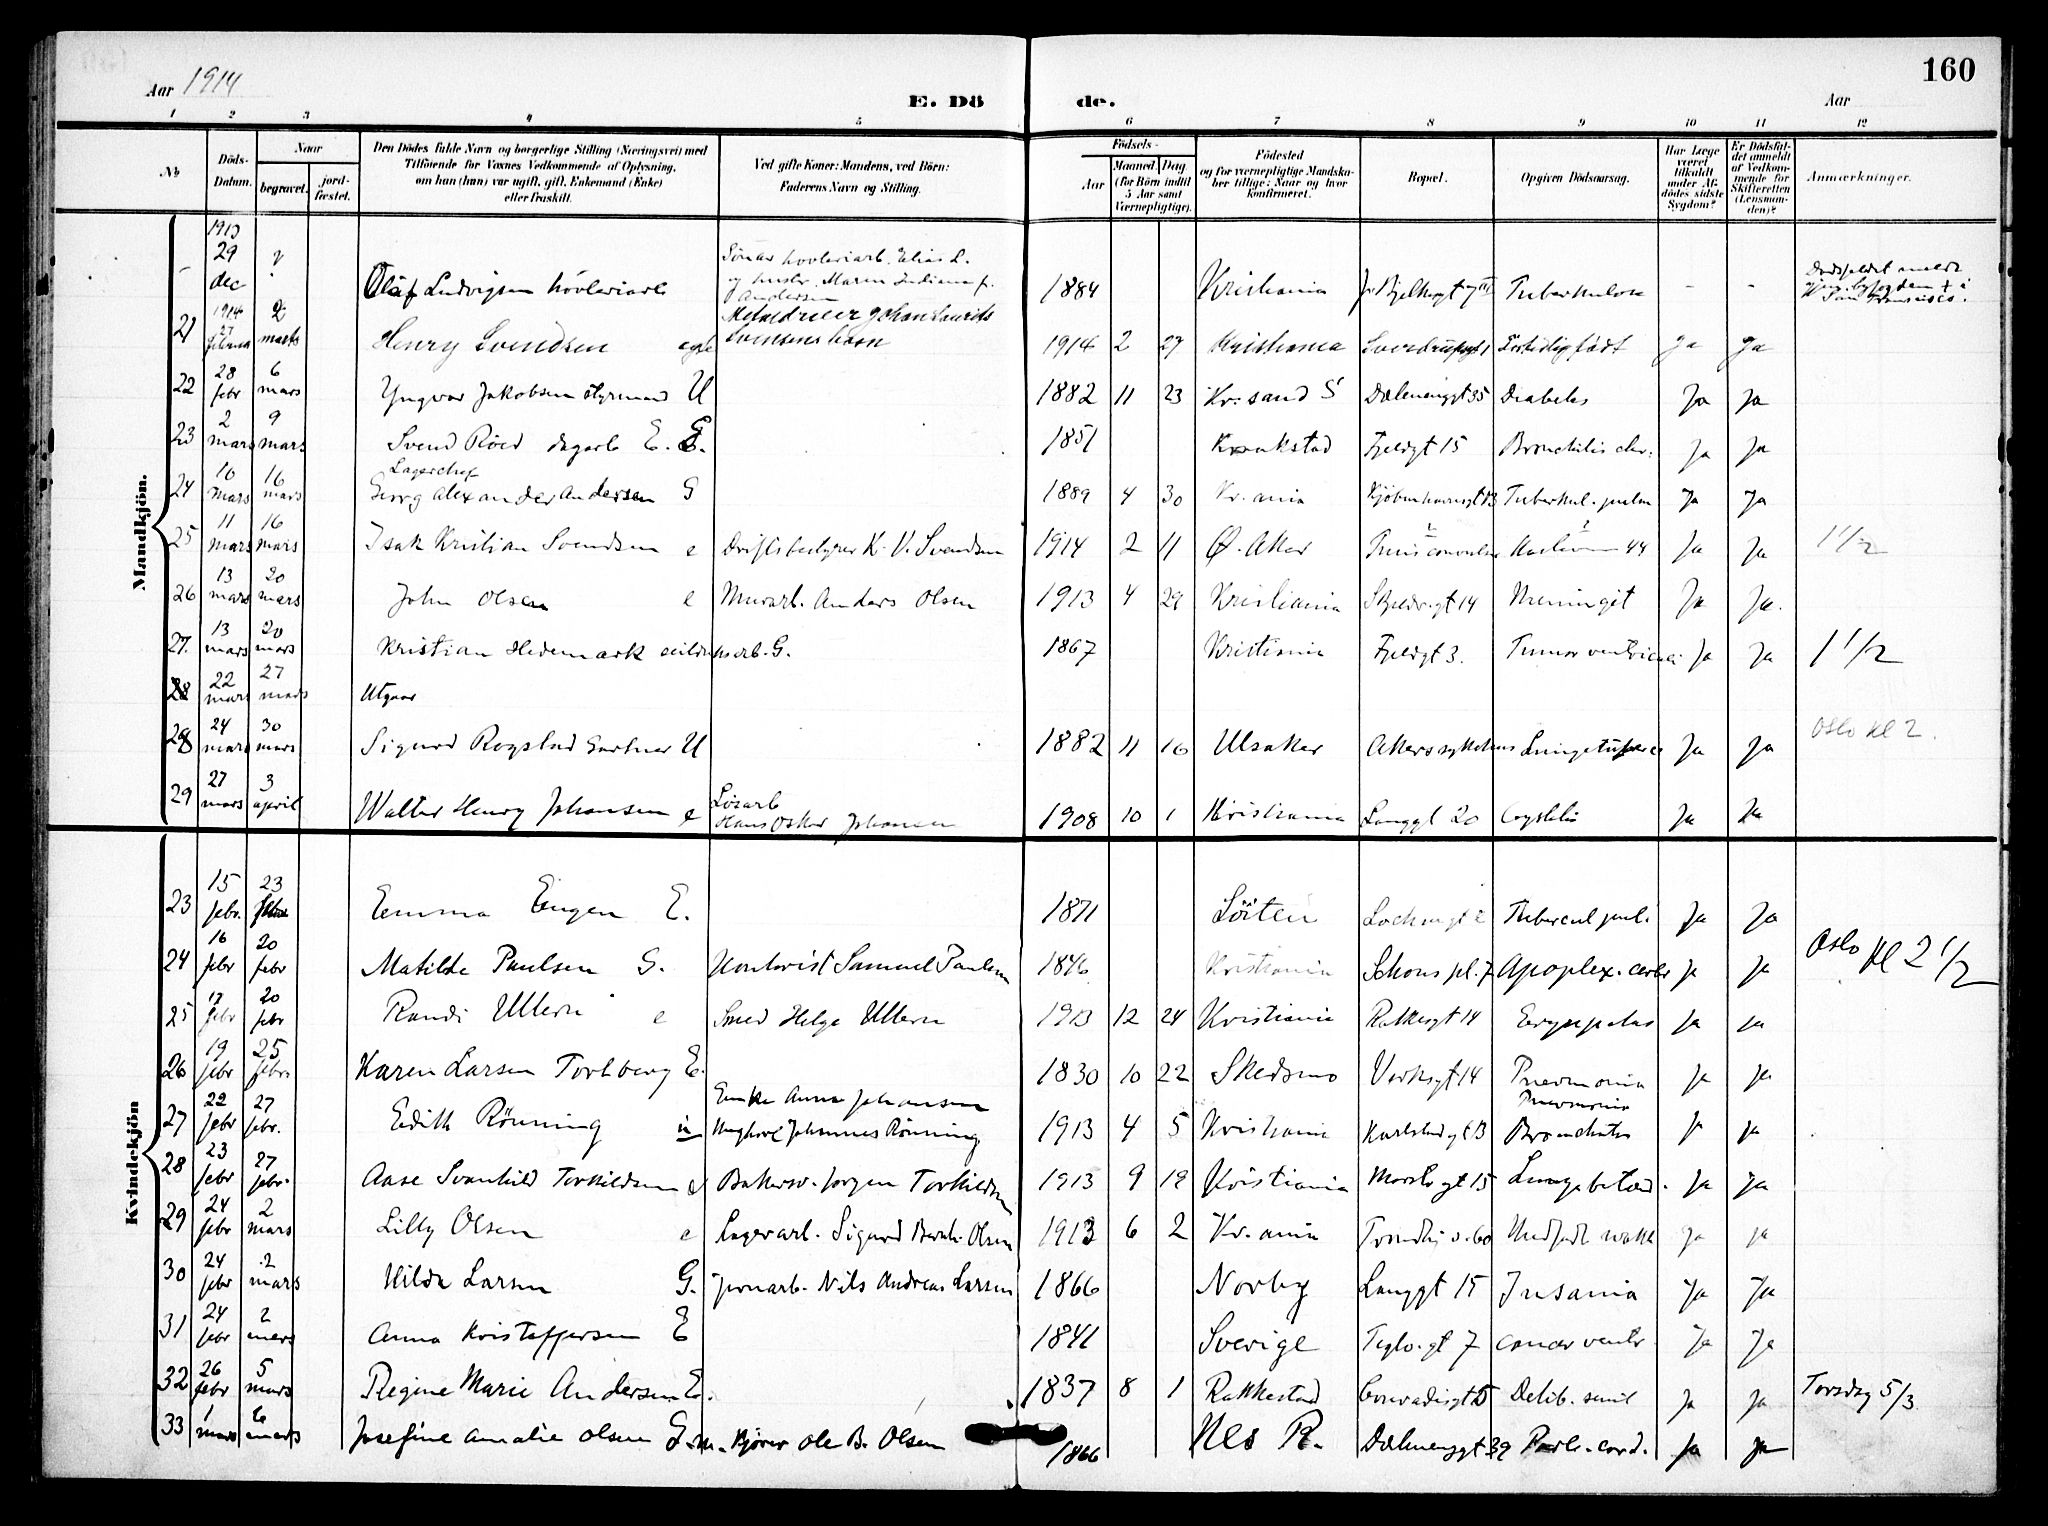 160
Aar 1914
E. Dö de.
Aar
1 2 3 4 5 6 7 8 9 10 11 12
No
Döds-Datum.
Naar
begravet.
jord-fæstet.
Den Dödes fulde Navn og borgerlige Stilling (Næringsvei) med
Tilföiende for Voxnes Vedkommende af Oplysning,
om han (hun) var ugift, gift, Enkemand (Enke)
eller fraskilt.
Ved gifte Koner: Mandens, ved Börn:
Faderens Navn og Stilling.
Födsels-
Aar
Maaned. Dag.
(for Börn indtil
5 Aar samt
Værnepligtige).
Födested
og for værnepligtige Mandska-
ber tillige: Naar og hvor
konfirmeret.
Bopæl.
Opgiven Dödsaarsag.
Har Læge
været
tilkaldt
under Af-
dödes sidste
Sygdom?
Er Dödsfal-
det anmeldt
af Vedkom-
mende for
Skifteretten
(Lensman-
den)?
Anmærkninger.
Mandkjön.
1913 29 dec ? Olaf Ludvigsen hövleriarb 1884 Kristiania Tuberkulose - -
21 1914 27 februar 2 marts Henry Svendsen 1914 2 27 Kristiania Fortidlig født Ja Ja
22 28 febr 6 mars Yngvar Jakobsen styrmand U 1882 11 23 Kr.sand S Dælenenggt 35 Diabetes Ja Ja
23 2 mars 9 mars Svend Röed dagarb E. 1851 Kraakstad Fjeldgt 15 Bronchitis chr. Ja Ja
24 10 mars 16 mars Lagerchef Georg Alexander Andersen G 1889 4 30 Kr.ania Kjøbenhavnsgt 13 Tuberkul. pulm Ja Ja
25 11 mars 16 mars Isak Kristian Svendsen e Driftsbestyrer K. V. Svendsen 1914 2 11 Ø. Aker Ja Ja 1 1/2
26 13 mars 20 mars John Olsen e Murarb. Anders Olsen 1913 4 29 Kristiania Meningit Ja Ja.
27. 13 mars 20 mars Kristian Hedemark G. 1867 Kristiania Fjeldgt 3. Tumor ventriculi Ja Ja 1 1/2
28 22 mars 27 mars Utgaar
28 24 mars 30 mars Sigurd Rogstad Gartner U 1882 11 16 Ulsaker Akers sykehus Ja Ja Oslo Kl 2.
29 27 mars 3 april Walter Henry Johansen e Løsarb Hans Oskar Johansen 1908 10 1 Kristiania Langgt 20 Ja Ja
Kvindekjön
23 15 febr. 23 febr Emma Engen E. 1871 Löiten Tubercul pul. Ja Ja
24 16 febr 20 febr Matilde Paulsen G. Samuel Paulsen 1846 Kristiania Schous pl. 7 Apoplex. cerbr Ja Ja Oslo Kl 2 1/2
25 17 febr 20 febr Randi Ullern e Smed Helge Ullern 1913 12 24 Kristiania Rathkesgt 14 Erysipelas Ja Ja
26 19 febr 25 febr. Karen Larsen Torkberg E. 1830 10 22 Skedsmo Verksgt 14 Pneumonia Ja Ja
27 22 febr 27 febr. Edith Rönning u Enke Anna Johansen Johannes Rönning 1913 4 5 Kristiania Karlstadgt 13 Pneumonia Bronchitis Ja Ja
28 23 febr 27 febr. Aase Svanhild Torkildsen e Bakersv. Jørgen Torkildsen 1913 9 19 Kristiania Lungebetæd. Ja Ja
29 24 febr 2 mars Lilly Olsen e Lagerarb. Sigurd Bernh. Olsen 1913 6 2 Kr.ania Trondhj v. 60 Medfødt Ja Ja
30 24 febr 2 mars Hilda Larsen G. Jernarb. Nils Andreas Larsen 1866 Norby Langgt 15 Insania Ja Ja
31 24 febr 2 mars Anna Kristoffersen E 1841 Sverige Teglv.gt 7 cancer ventr. Ja Ja
32 26 febr 5 mars Regine Marie Andersen E. 1837 8 1 Rakkestad Conradisgt 5 Debil. senil Ja Ja Torsdag 5/3
33 1 mars 6 mars Josefine Amalie Olsen G. Kjører Ole B. Olsen 1866 Nes R. Dælenenggt 39 Ja Ja